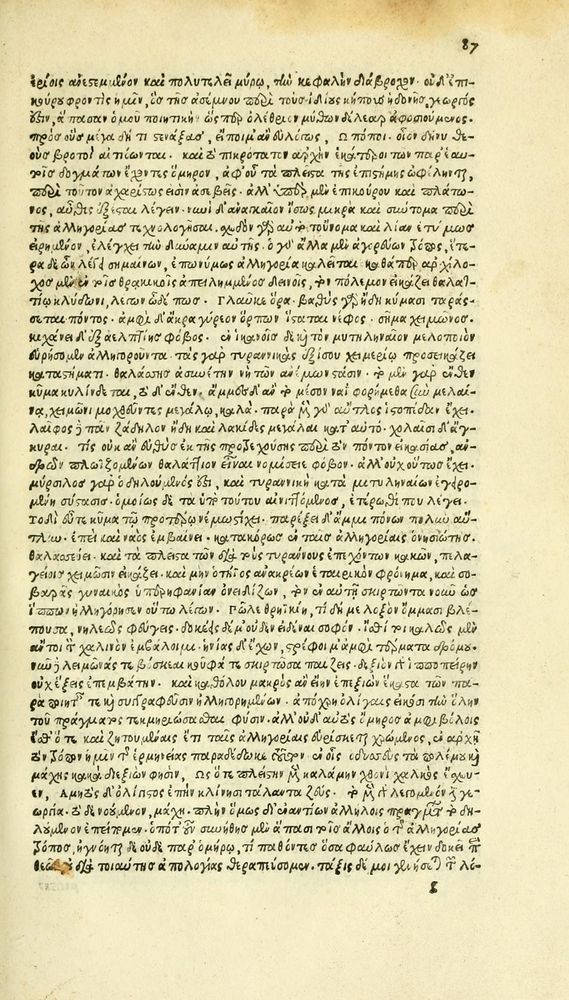 87
ἐρίοις ἀνεστεμμένον καὶ πολυτελεῖ μύρῳ, τὴν κεφαλὴν διάβροχον. οὐδ' ἐπι-
κούρου φροντὶς ἡμῖν, ὃς τῆς ἀσέμνου περὶ τοὺς ἰδίους κήπους ἡδονῆς γεωργός
ἐστιν, ἅπασαν ὁμοῦ ποιητικὴν ὥσπερ ὀλέθριον μύθων δέλεαρ ἀφοσιούμενος.
πρὸς οὓς μέγα δή τι στενάξας, εἴποιμ' ἂν εὐλόγως, Ὢ πόποι. οἷον δή νυ θε-
οὺς βροτοὶ αἰτιόωνται. καὶ τὸ πικρότατον ἀρχὴν ἑκάτεροι τῶν παρ' ἑαυ-
τοῖς δογμάτων ἔχοντες ὅμηρον, ἀφ' οὗ τὰ πλεῖστα τῆς ἐπιστήμης ὠφέληντ,
περὶ τοῦτον ἀχαρίστως εἰσὶν ἀσεβεῖς. ἀλλ' ὑπὲρ μὲν ἐπικούρου καὶ πλάτω-
νος, αὖθις ἔξεσται λέγειν. νυνὶ δ' ἀναγκαῖον ἴσως μικρὰ καὶ σύντομα περὶ
τῆς ἀλληγορίας τεχνολογῆσαι. σχεδὸν γὰρ αὐτὸ τοὔνομα καὶ λίαν ἐτύμως
εἰρημένον, ἐλέγχει τὴν δύναμιν αὐτῆς. ὁ γὰρ ἄλλα μὲν ἀγορεύων τρόπος, ἕτε-
ρα δὲ ὧν λέγει σημαίνων, ἐπωνύμως ἀλληγορία καλεῖται. καθάπερ ἀρχίλο-
χος μὲν ἐν τοῖς θρακικοῖς ἀπειλημμένος δεινοῖς, τὸν πόλεμον εἰκάζει θαλατ-
τίῳ κλύδωνι, λέγων ὧδέ πως. Γλαῦκε ὅρα. βαθὺς γὰρ ἤδη κύμασι ταράς-
σεται πόντος. ἀμφὶ δ' ἄκρα γύρεον ὀρπων ἵσταται νέφος. σῆμα χειμῶνος.
κιχάνει δ' ἐξ ἀελπτίης φόβος. ἐν ἱκανοῖς δὲ καὶ τὸν μυτηλιναῖον μελοποιὸν
εὑρήσομεν ἀλληγοροῦντα. τὰς γὰρ τυραννικὰς ἐξίσου χειμερίῳ προσεικάζει
καταστήματι. θαλάσσης ἀσυέτην νὴ τῶν ἀνέμων στάσιν. τὸ μὲν γὰρ ἔνθεν
κῦμα κυλίνδεται, τὸ δ' ἔνθεν. ἄμμες δ' ἂν τὸ μέσον ναῒ φορήμεθα σὺν μελαί-
να, χειμῶνι μοχθοῦντες μεγάλῳ, καλά. παρὰ μὲν γὰρ αὖτλος ἱστοπέδαν ἔχει.
λαῖφος ᾗ πᾶν ζάδηλον ἤδη καὶ λακίδες μεγάλαι κατ' αὐτό. χόλαισι δ' ἄγ-
κυραι. τίς οὐκ ἂν εὐθὺς ἐκ τῆς προτρεχούσης περὶ τὸν πόντον εἰκασίας, ἀν-
δρῶν πλωϊζομένων θαλάττιον εἶναι νομίσειε φόβον. ἀλλ' οὐχ οὕτως ἔχει.
μύρσιλος γὰρ ὁ δηλούμενός ἐστι, καὶ τυραννικὴ κατὰ μετυληναίων ἐγειρο-
μένη σύστασις. ὁμοίως δὲ τὰ ὑπὸ τούτου αἰνιττόμενος, ἑτέρωθί που λέγει.
Τοδὶ οὖτε κῦμα τῷ προτέρῳ νέμως ἔχει. παρέξει δ' ἄμμι πόνων πολὺν αὔ-
τλω. ἐπεὶ καὶ ναὸς ἐμβαίνει. κατακόρως ἐν ταῖς ἀλληγορίαις ὁ νησιώτης
θαλασσεύει. καὶ τὰ πλεῖστα τῶν διὰ τοὺς τυράννους ἐπεχόντων κακῶν, πελα-
γείοις χειμῶσιν εἰκάζει. καὶ μὴν ὁ τήϊος ἀνακρέων ἑταιρικὸν φρόνημα, καὶ σο-
βαρᾶς γυναικὸς ὑπερηφανίαν ὀνειδίζων, τὸν ἐν αὐτῇ σκιρτῶντα νοῦν ὡς
ἵππον ἠλληγόρησεν οὕτω λέγων. Πῶλε θρηκίη, τί δή με λοξὸν ὄμμασι βλέ-
πουσα, νηλεῶς φεύγεις. δοκέεις δέ μ' οὐδὲν εἰδέναι σοφόν. ἴσθι τοι καλῶς μὲν
ἄν τοι τὸν χαλινὸν ἐμβάλοιμι. ἡνίας δ' ἔχων, στρέφοιμ' ἀμφὶ τέρματα δρόμου.
νῦν δὲ λειμῶνάς τε βόσκεαι κοῦφά τε σκιρτῶσα παίζεις. δεξιὸν γὰρ ἱπποπείρην
οὐχ ἕξεις ἐπεμβάτην. καὶ καθόλου μακρὸς ἂν εἴην ἐπεξιὼν ἕκαστα τῶν πα-
ρὰ ποιηταῖς τε καὶ συγγραφεῦσιν ἠλληγορημένων. ἀπόχρη δ' ὀλίγαις εἰκόσι τὴν ὅλην
τοῦ πράγματος τεκμηριώσασθαι φύσιν. ἀλλ' οὐδ' αὐτὸς ὅμηρος ἀμφιβόλοις
ἔσθ' ὅτε καὶ ζητουμέναις ἔτι ταῖς ἀλληγορίαις εὑρίσκεται χρώμενος, ἐν ἀρχῇ
τὸν τρόπον ἡμῖν τὸν ἑρμηνείας παραδέδωκε τοῦτον ἐν οἷς ὀδυσσεὺς τὰ πολέμου καὶ
μάχης κακὰ διεξιὼν φησὶν, Ὥς ὅτε πλείστην μὲν καλάμην χθονὶ χαλκὸς ἔχευ-
εν, Ἀμητὸς δ' ὀλίγιστος ἐπὴν κλίνησι τάλαντα ζεύς. τὸ μὲν γὰρ λεγόμενόν ἐστι γε-
ωργία. τὸ δὲ νοούμενον, μάχη. πλὴν ὅμως δι' ἐναντίων ἀλλήλοις πραγμάτων τὸ δη-
λούμενον ἐπείπομεν. ὁπότ' οὖν συνήθης μὲν ἅπασι τοῖς ἄλλοις ὁ τῆς ἀλληγορίας
τρόπος, ἠγνόηται δὲ οὐδὲ παρ' ὁμήρῳ, τί παθόντες ὅσα φαύλως ἔχειν δοκεῖ περὶ
θεῶν, διὰ τοιαύτης ἀπολογίας θεραπεύσομεν. τάξις δέ μοι γενήσεται τῶν λό-
g